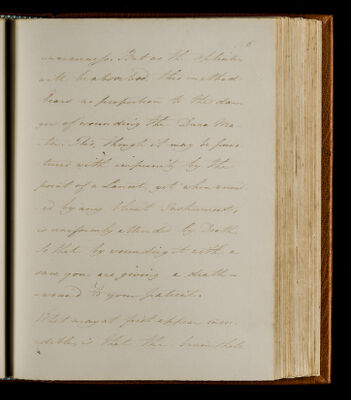 6
unevenness. But as the splinters
will be absorbed this method
bears no proportion to the dan-
ger of wounding the Dura Ma-
ter. This, though it may be punc-
tured with impunity by the
point of a Lancet, yet when wound-
ed by any blunt Instrument,
is uniformly attended by Death
So that by wounding it with a
saw you are giving a death-
wound to your patient.
What may at first appear incre-
dible, is that the